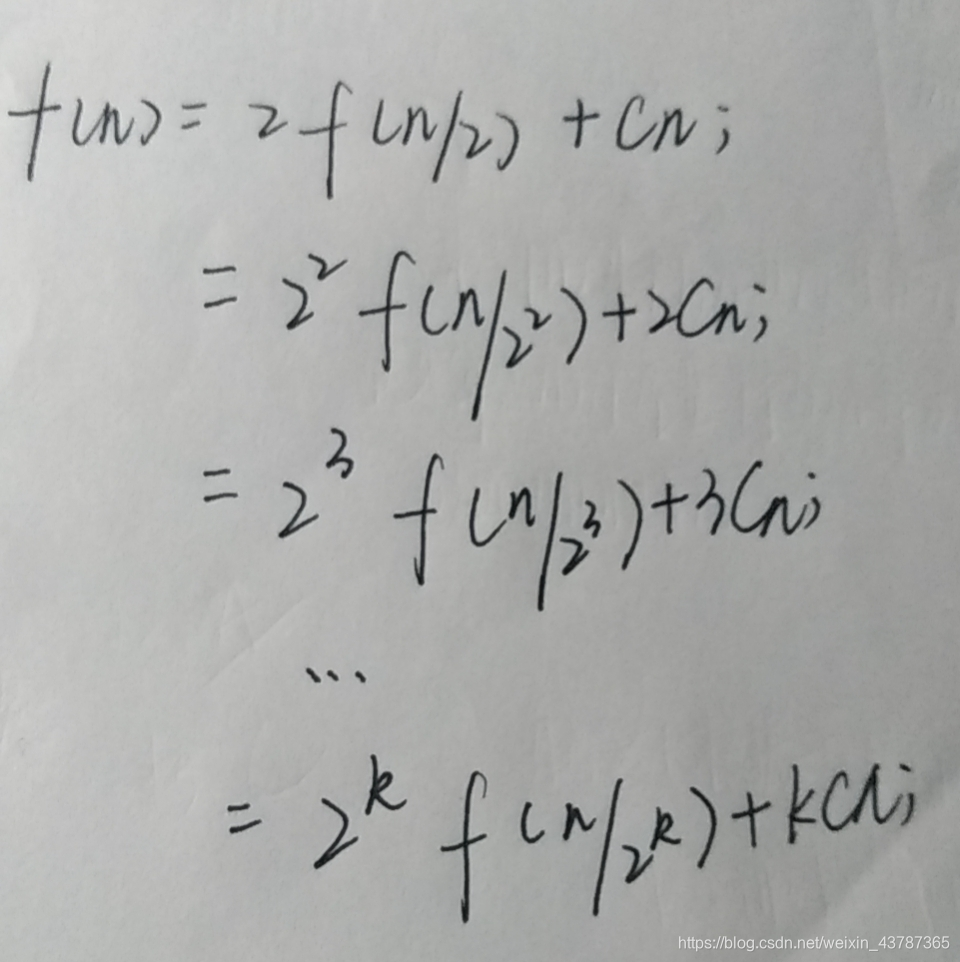 f(n) = 2f(n/2) + Cn;
= 2² f(n/2²) + 2Cn;
= 2³ f(n/2³) + 3Cn;
...
= 2ᵏ f(n/2ᵏ) + kCn;
https://blog.csdn.net/weixin_43787365